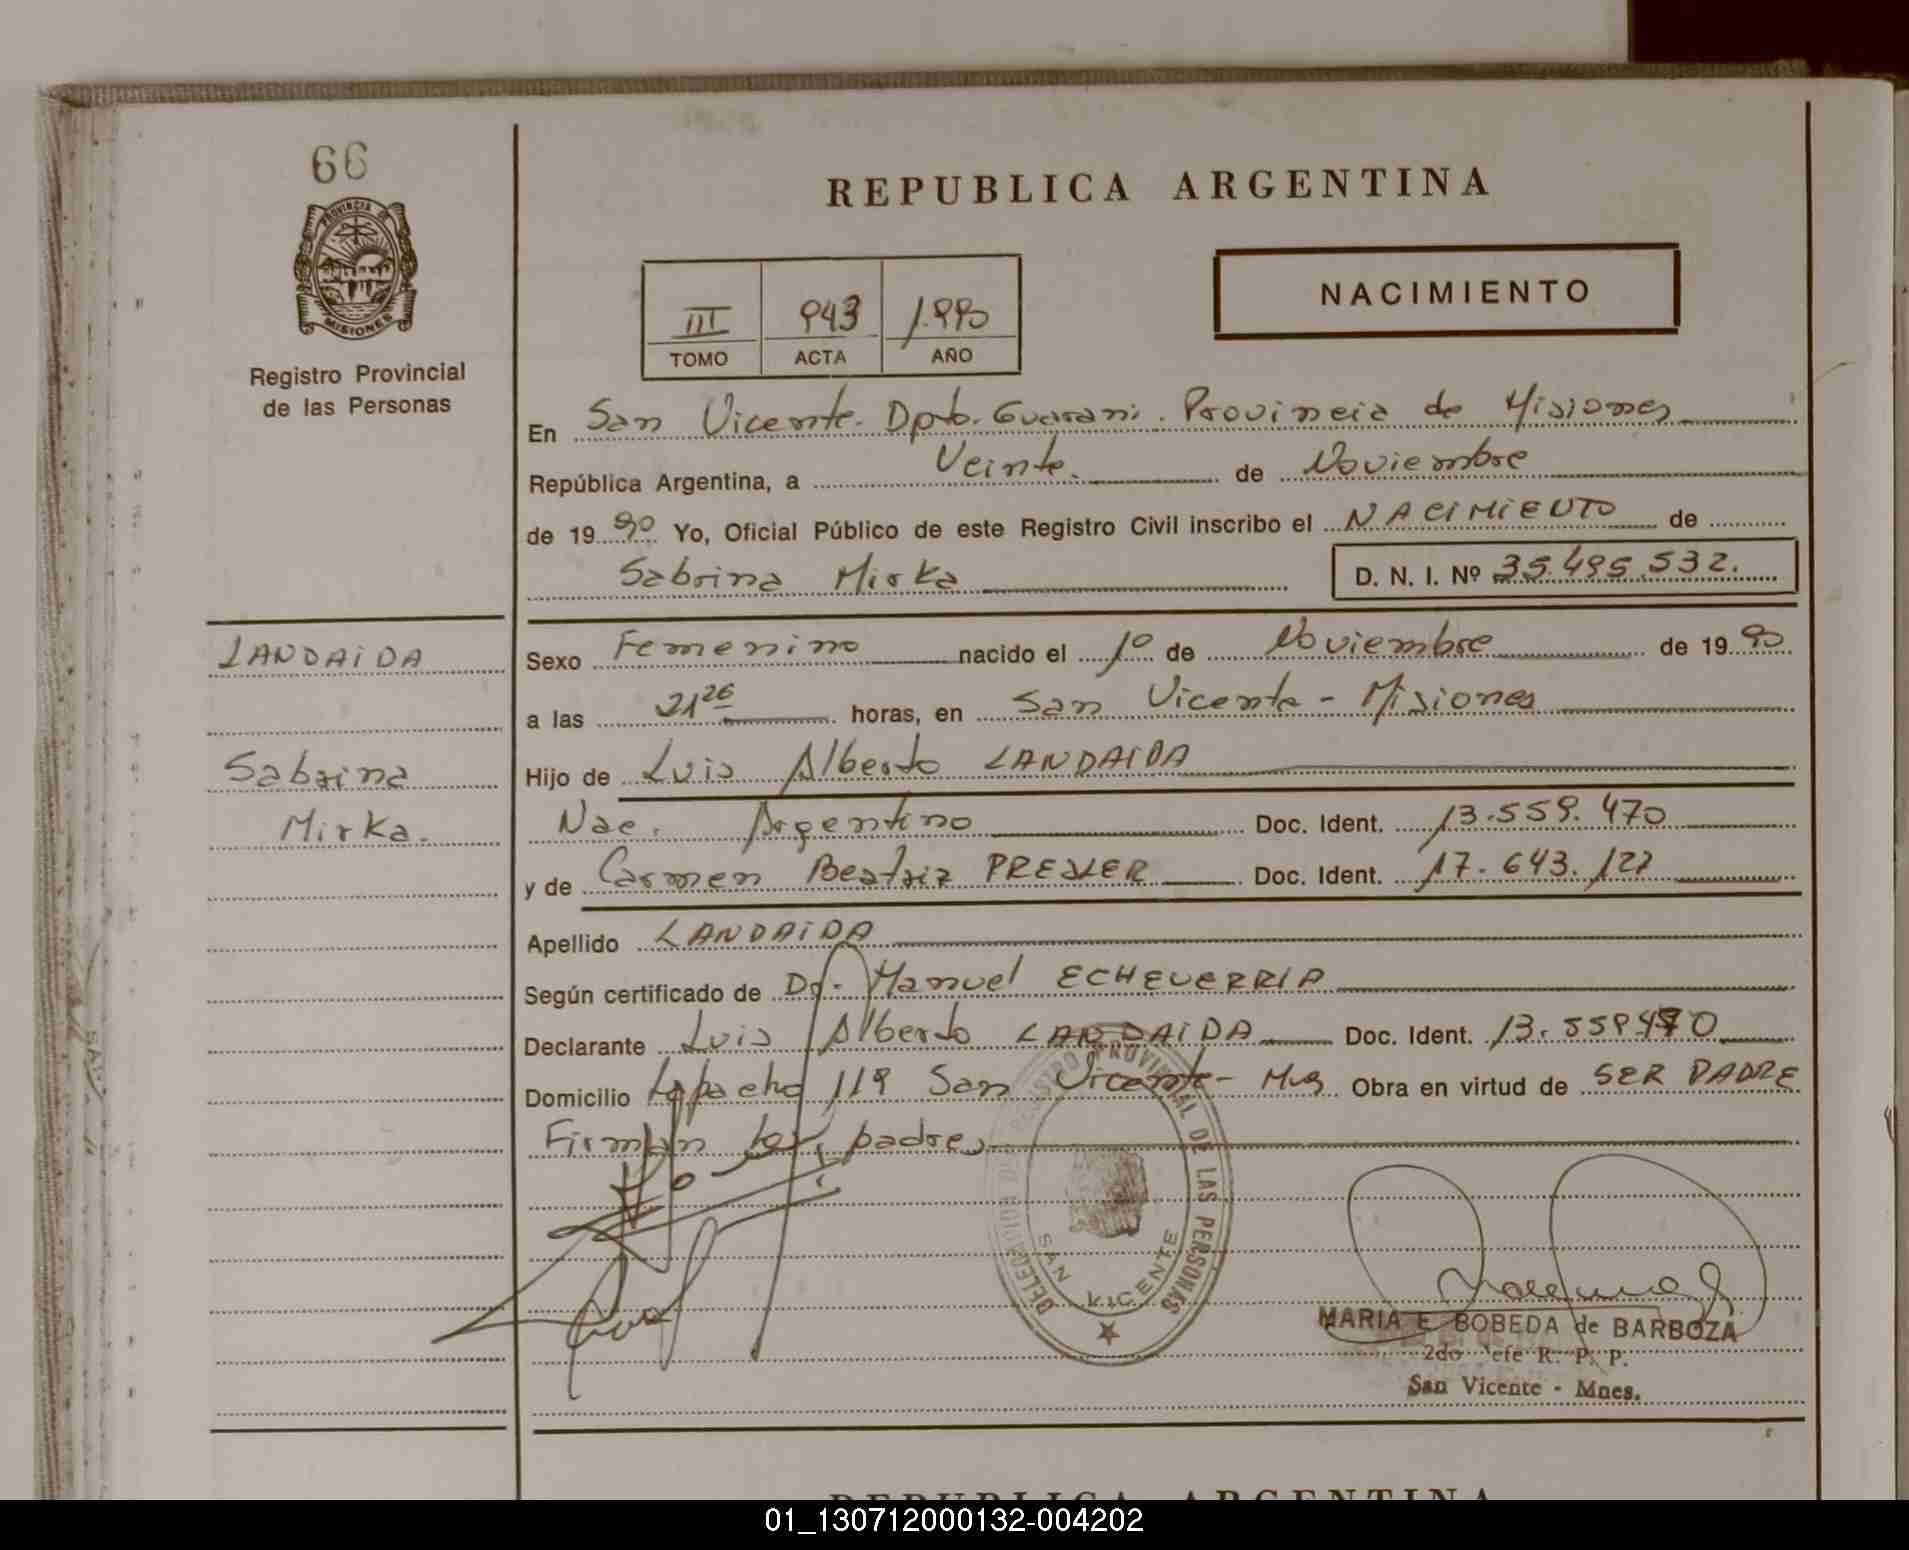 66
PROVINCIA DE
MISIONES
Registro Provincial
de las Personas
REPUBLICA ARGENTINA
III 943 1.990
TOMO ACTA AÑO
NACIMIENTO
En San Vicente. Dpto. Guarani. Provincia de Misiones
República Argentina, a Veinte. de Noviembre
de 1990 Yo, Oficial Público de este Registro Civil inscribo el NACIMIENTO de
Sabrina Mirka D. N. I. Nº 35.495.532.
LANDAIDA
Sabrina
Mirka.
Sexo Femenino nacido el 1º de Noviembre de 1990
a las 21 26 horas, en San Vicente - Misiones
Hijo de Luis Alberto LANDAIDA
Nac. Argentino Doc. Ident. 13.559.470
y de Carmen Beatriz Doc. Ident. 17.643.127
Apellido LANDAIDA
Según certificado de Dr. Manuel ECHEVERRIA
Declarante Luis Alberto LANDAIDA Doc. Ident. 13.559470
Domicilio Lapacho 119 San Vicente - Mns Obra en virtud de SER PADRE
Firman los padres
DELEGACION DEL REGISTRO PROVINCIAL DE LAS PERSONAS
SAN VICENTE
MARIA E BOBEDA de BARBOZA
2do Jefe R. P. P.
San Vicente - Mnes.
REPUBLICA ARGENTINA
01_130712000132-004202